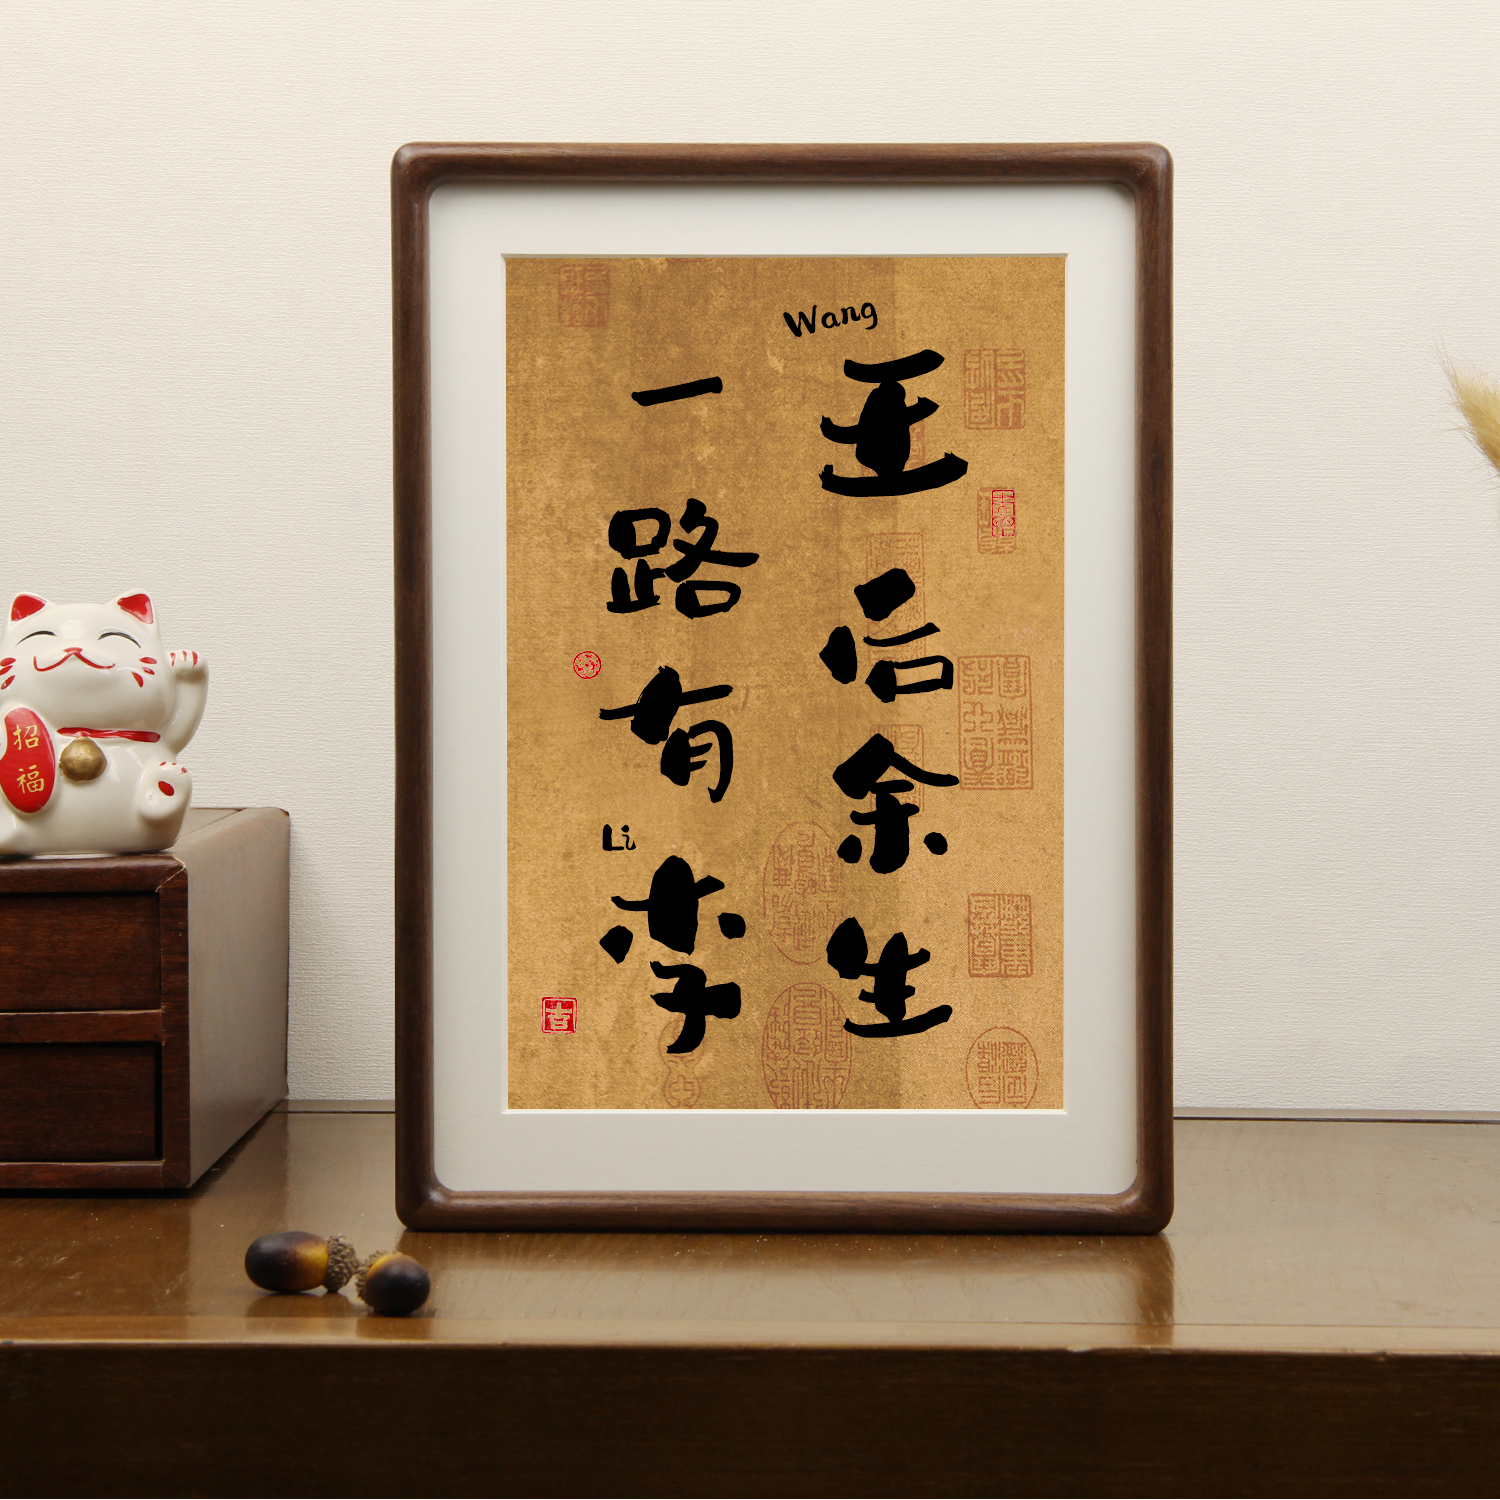 Wang
王后余生
一路有
Li
李
吉
招福